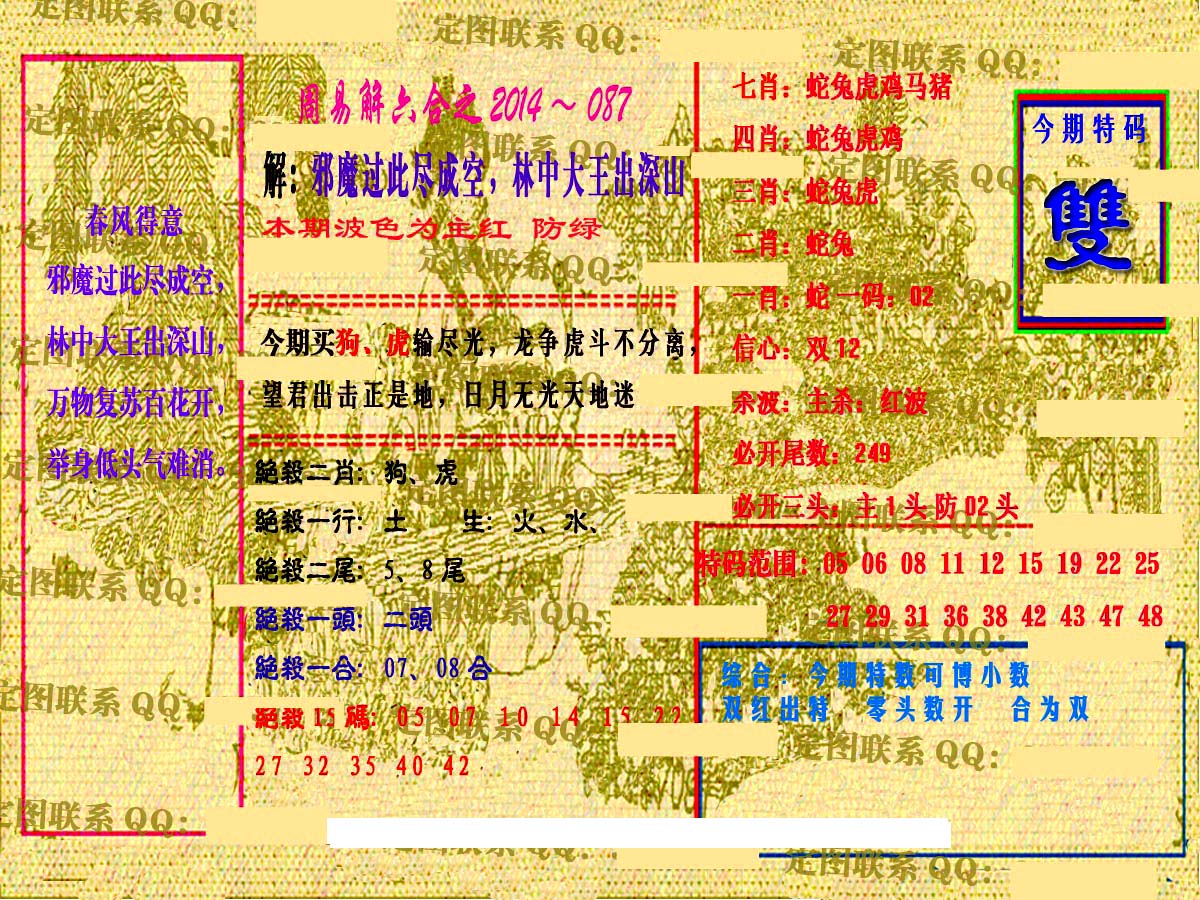 周易解六合之 2014～087
春风得意
邪魔过此尽成空，
林中大王出深山，
万物复苏百花开，
举身低头气难消。
解：邪魔过此尽成空，林中大王出深山
本期波色为主红 防绿
今期买狗、虎输尽光，龙争虎斗不分离，
望君出击正是地，日月无光天地迷
絕殺二肖：狗、虎
絕殺一行：土 生：火、水、
絕殺二尾：5、8 尾
絕殺一頭：二頭
絕殺一合：07、08 合
絕殺 15 碼：05 07 10 14 15 22
27 32 35 40 42
七肖：蛇兔虎鸡马猪
四肖：蛇兔虎鸡
三肖：蛇兔虎
二肖：蛇兔
一肖：蛇 一码：02
信心：双 12
杀波：主杀：红波
必开尾数：249
必开三头：主 1 头 防 02 头
特码范围：05 06 08 11 12 15 19 22 25
27 29 31 36 38 42 43 47 48
今期特码
雙
综合：今期特数可博小数
双红出特 零头数开 合为双
定图联系 QQ：
定图联系 QQ：
定图联系 QQ：
定图联系 QQ：
定图联系 QQ：
定图联系 QQ：
定图联系 QQ：
定图联系 QQ：
定图联系 QQ：